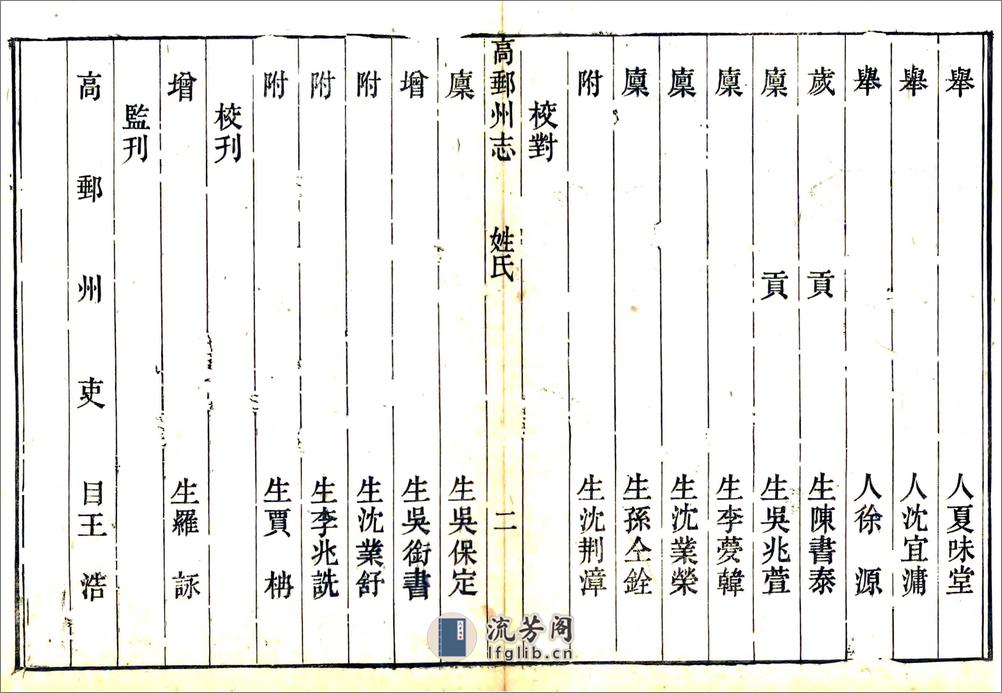 舉人夏味堂
舉人沈宜𣽂
舉人徐源
歲貢生陳書泰
廩貢生吳兆萱
廩生李夢韓
廩生沈業榮
廩生孫仝銓
附生沈荆漳
校對
高郵州志 姓氏 二
廩生吳保定
增生吳銜書
附生沈業舒
附生李兆詵
附生賈枬
校刊
增生羅詠
監刊
高郵州吏目王浩
流芳阁
lfglib.cn